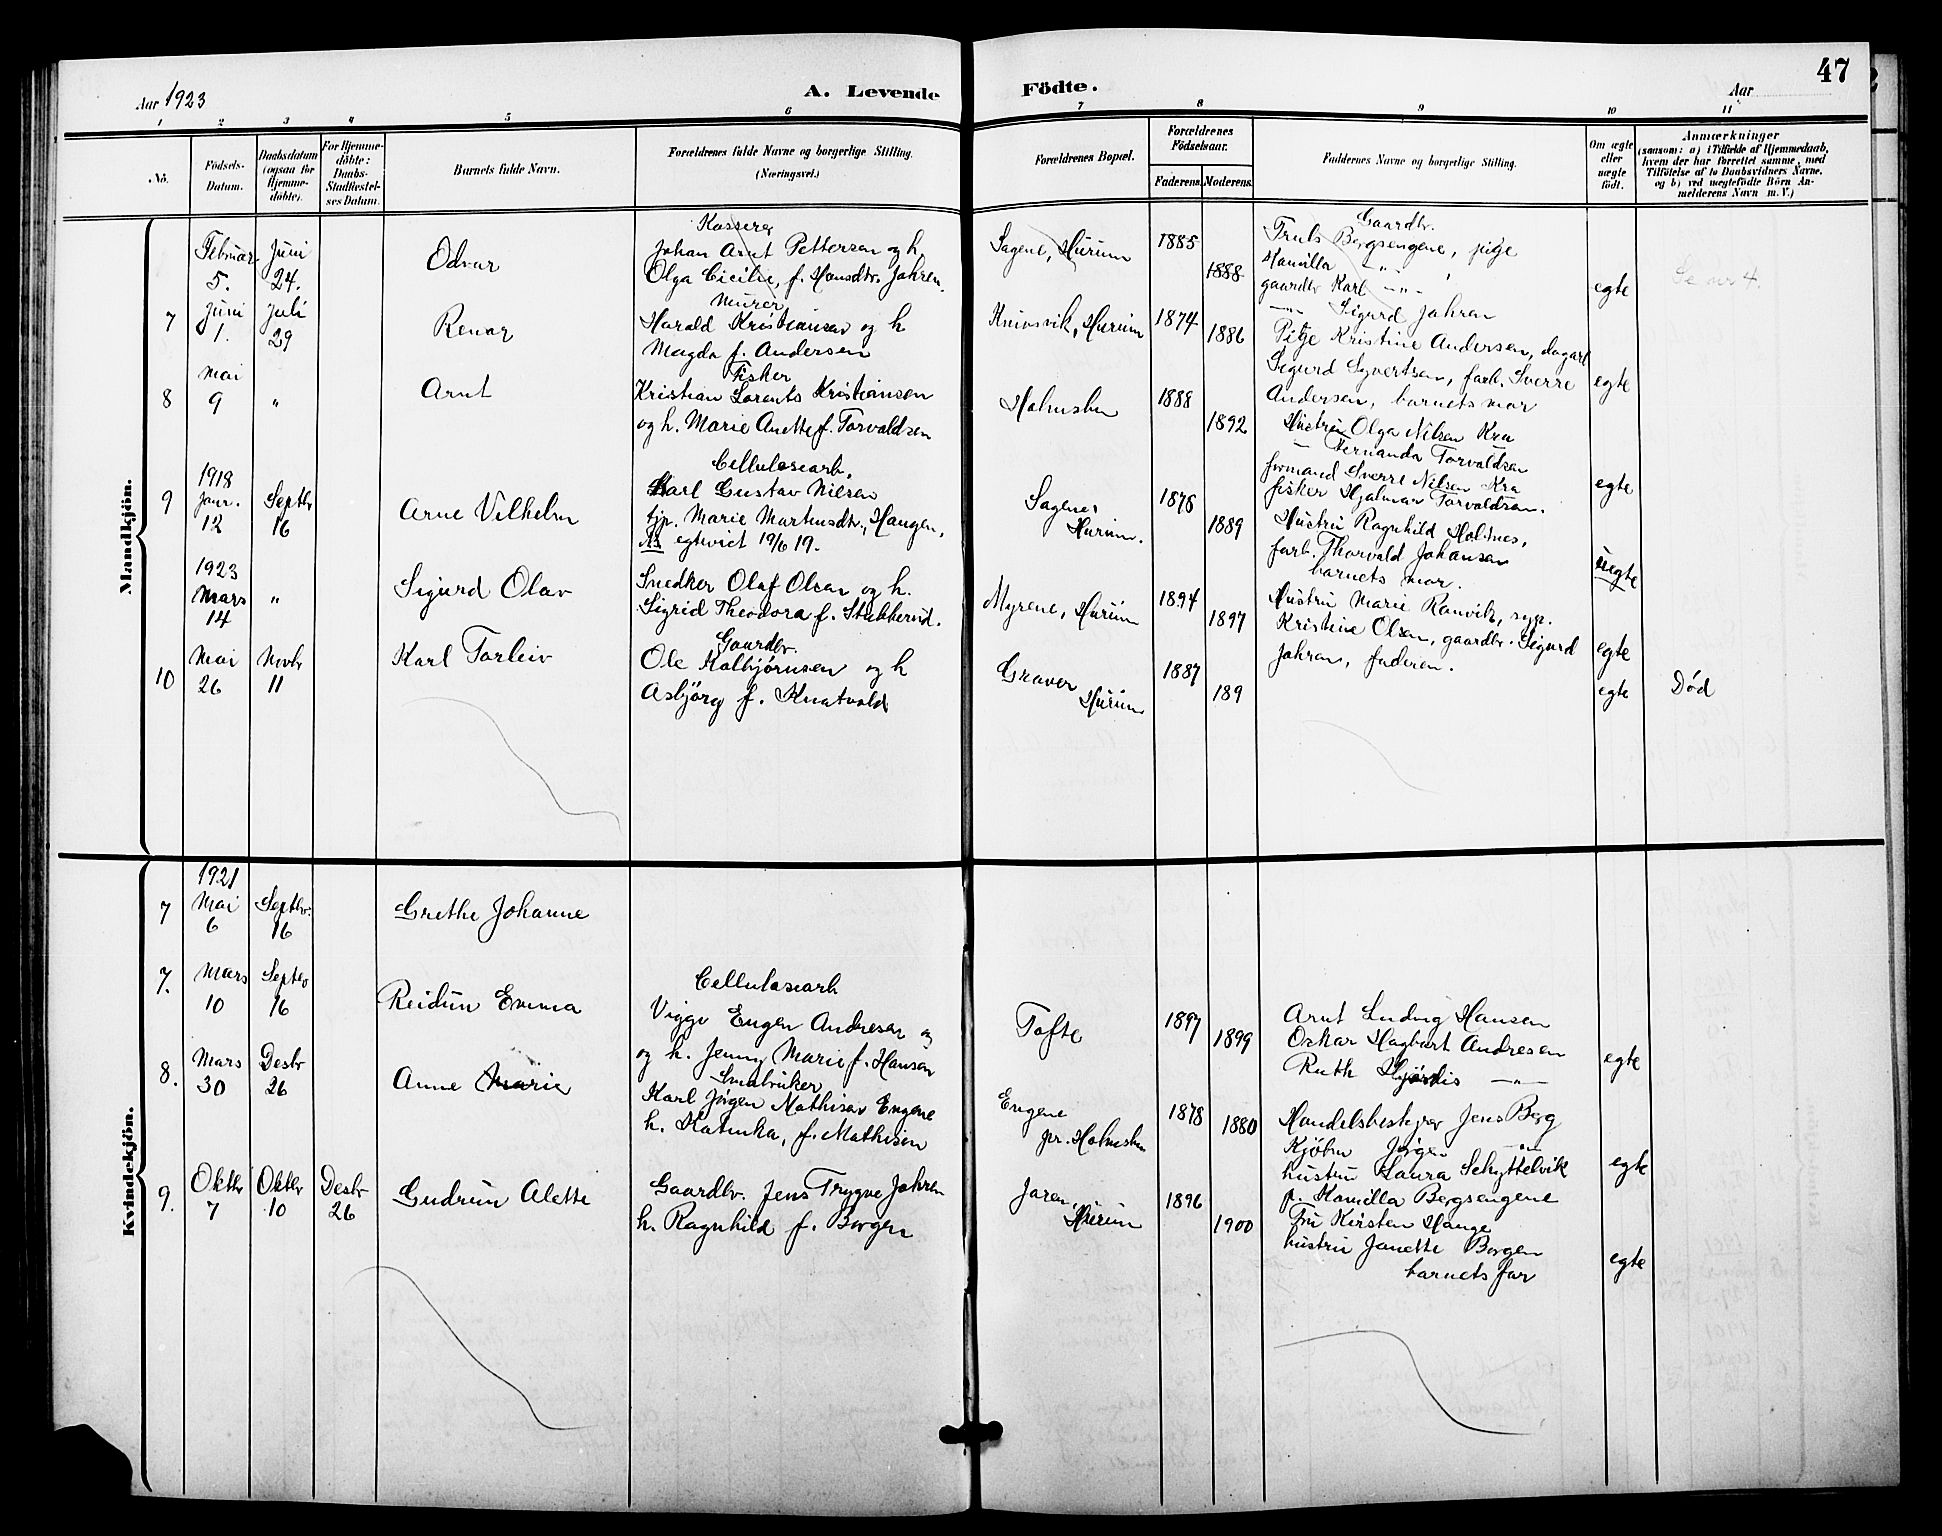 47
Aar 1923
A. Levende
Födte.
Aar
1 2 3 4 5 6 7 8 9 10 11
No.
Födsels-
Datum.
Daabsdatum
(ogsaa for
Hjemme-
döbte).
For Hjemme-
döbte:
Daabs-
Stadfæstel-
ses Datum.
Barnets fulde Navn.
Forældrenes fulde Navne og borgerlige Stilling.
(Næringsvei.)
Forældrenes Bopæl.
Forældrenes
Födselsaar.
Faderens.
Moderens.
Faddernes Navne og borgerlige Stilling.
Om ægte
eller
uægte
født.
Anmærkninger
(saasom: a) i Tilfælde af Hjemmedaab,
hvem der har forrettet samme, med
Tilföielse af to Daabsvidners Navne,
og b) ved uægtefödte Börn An-
melderens Navn m. V.)
Mandkjön.
Februar
5.
Juni
24.
Odvar
Kasserer
Johan Arnt Pettersen og h.
Olga Cicilie, f. Hansdtr. Jahren.
Sagene, Hurum
1885
1888
Gaardbr.
Truls Bergsengene, pige
Hamilla —"—
gaardbr Karl —"—
—"— Sigurd Jahren
egte
Se nr 4.
7
Juni
1.
Juli
29
Renar
Murer
Harald Kristiansen og h
Magda f. Andersen
Knivsvik, Hurum
1874
1886
Pige Kristine Andersen, dagarb
Sigurd Syvertsen, farb. Sverre
Andersen, barnets mor
egte
8
Mai
9
"
Arnt
Fisker
Kristian Lorents Kristiansen
og h. Marie Anette f. Torvaldsen
Holmsbu
1888
1892
Hustru Olga Nilsen Kra
— Fernanda Torvaldsen
formand Sverre Nilsen Kra
fisker Hjalmar Torvaldsen.
egte
9
1918
Janr.
12
Septbr
16
Arne Vilhelm
Cellulosearb.
Karl Gustav Nilsen
tjp. Marie Martinsdtr. Haugen,
NB egteviet 19/6 19.
Sagene,
Hurum.
1878
1889
Hustru Ragnhild Holmes,
farb. Thorvald Johansen
barnets mor.
uegte
1923
Mars
14
"
Sigurd Olav
Snedker Olaf Olsen og h.
Sigrid Theodora f. Stubberud.
Myrene, Hurum
1894
1897
Hustru Marie Ramvik, syp.
Kristine Olsen, gaardbr. Sigurd
Jahren, faderen.
egte
10
Mai
26
Novbr
11
Karl Torleiv
Gaardbr.
Ole Kolbjørnsen og h
Asbjörg f. Knatvold
Graver
Hurum
1887
189
egte
Død
Kvindekjön.
7
1921
Mai
6
Septbr.
16
Grethe Johanne
7.
Mars
10
Septbr
16
Reidun Emma
Cellulosearb
Viggo Eugen Andresen og
og h. Jenny Marie f. Hansen
Tofte
1897
1899
Arnt Ludvig Hansen
Oskar Hagbart Andresen
Ruth Hjørdis —"—
egte
8.
Mars
30
Desbr
26
Anne Marie
Smabruker
Karl Jörgen Mathisen Engene
h. Katinka, f. Mathisen
Engene
pr. Holmsbu
1878
1880
Handelsbestyrer Jens Berg
Kjøbm Jørgen —"—
hustru Laura Schyttelvik
p. Hamilla Bergsengene
egte
9.
Oktbr
7
Oktbr
10
Desbr
26
Gudrun Alette
Gaardbr. Jens Trygve Jahren
h. Ragnhild f. Borgen
Jaren,
Hurum
1896
1900
Fru Kirsten Hauge
hustru Janette Borgen
barnets far
egte